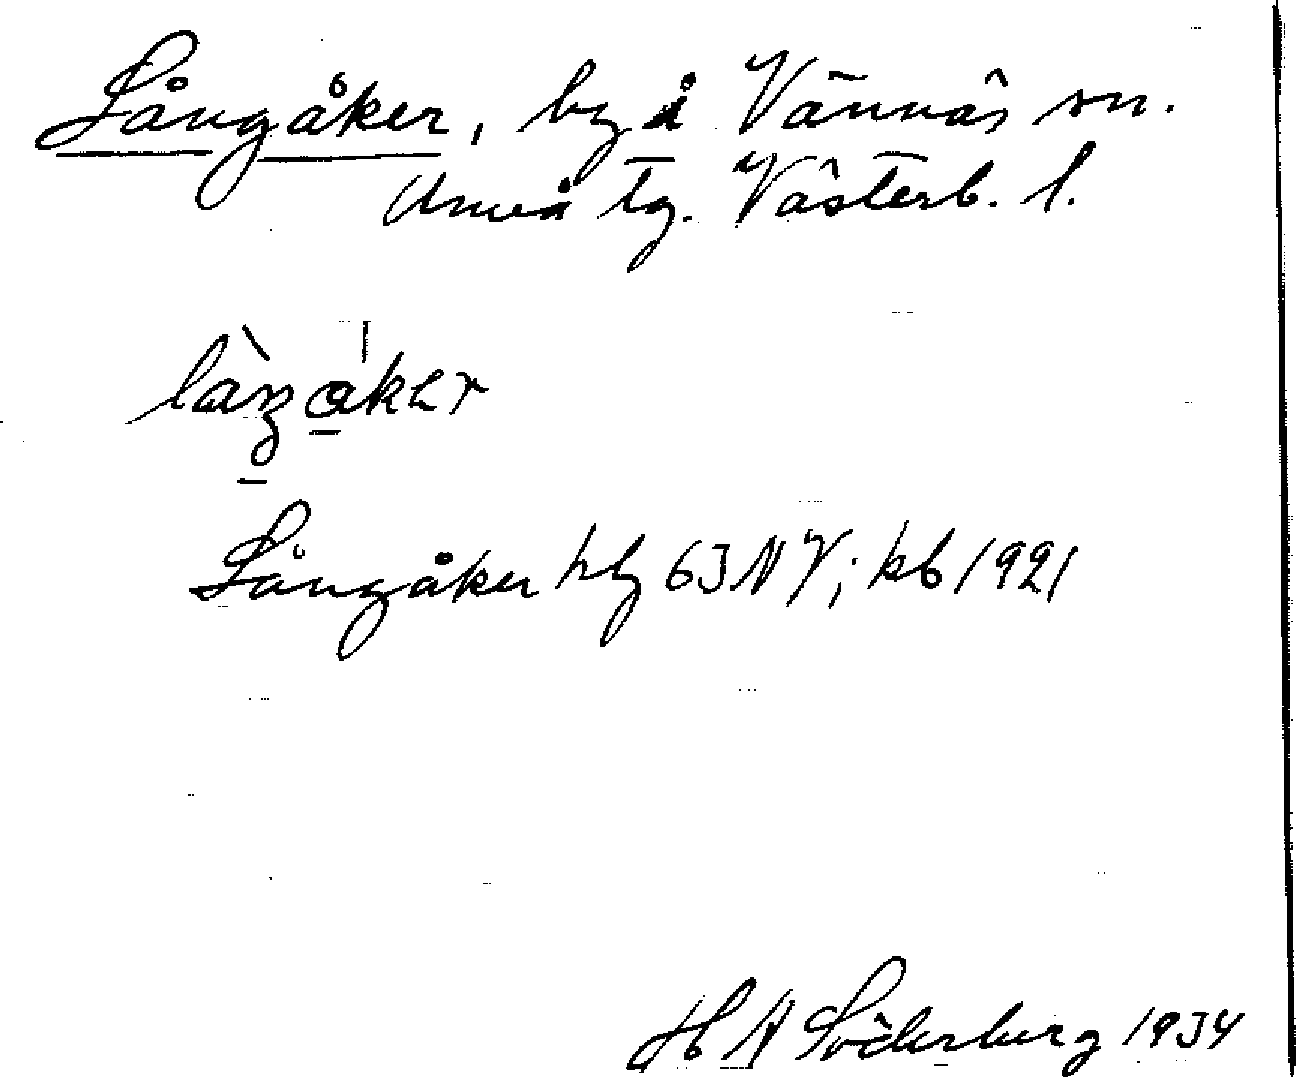 Långåker, by i Vännäs sn.
Umeå tg. Västerb. l.
Långåker hbg 63 NV; kb 1921
H A Söderberg 1934